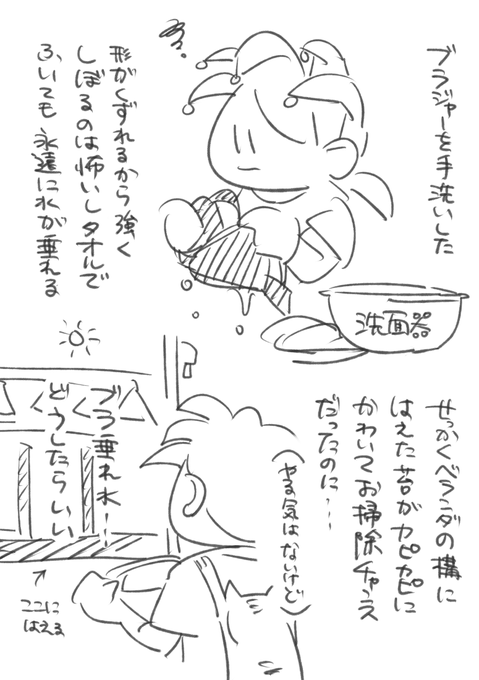 ブラジャーを手洗いした
形がくずれるから強く
しぼるのは怖いしタオルで
ふいても永遠に水が垂れる
洗面器
せっかくベランダの構に
はえた苔がカピカピに
かわいてお掃除チャンス
だったのに…
(やる気はないけど)
ブラ垂れ水!
どうしたらいい
ここに
はえる